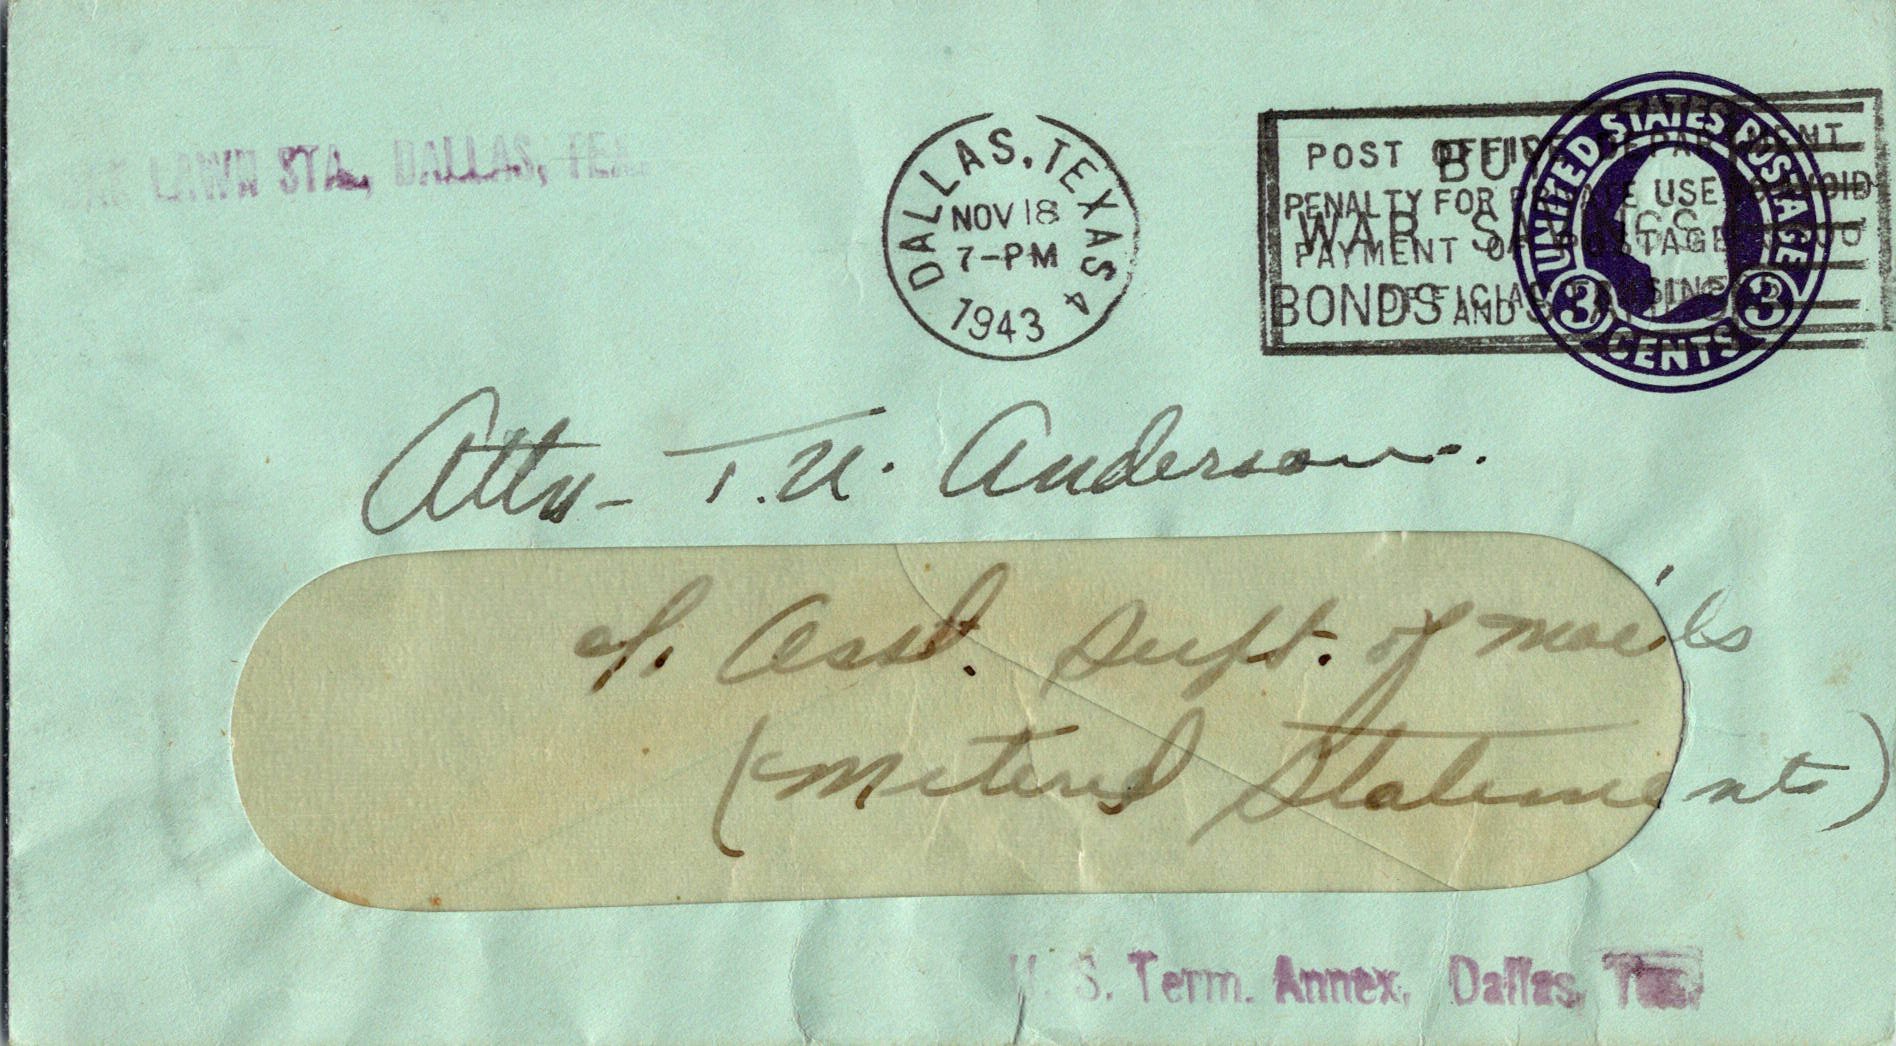 LAWN STA., DALLAS, TEX.
DALLAS, TEXAS 4
NOV 18
7-PM
1943
POST OFFICE DEPARTMENT
PENALTY FOR PRIVATE USE TO AVOID
PAYMENT OF POSTAGE, $300
OFFICIAL BUSINESS
BUY
WAR SAVINGS
BONDS AND STAMPS
UNITED STATES POSTAGE
3 CENTS 3
Attn- T.U. Anderson.
c/o Asst. Supt. of Mails
(Metered Statements)
U. S. Term. Annex, Dallas, Tex.